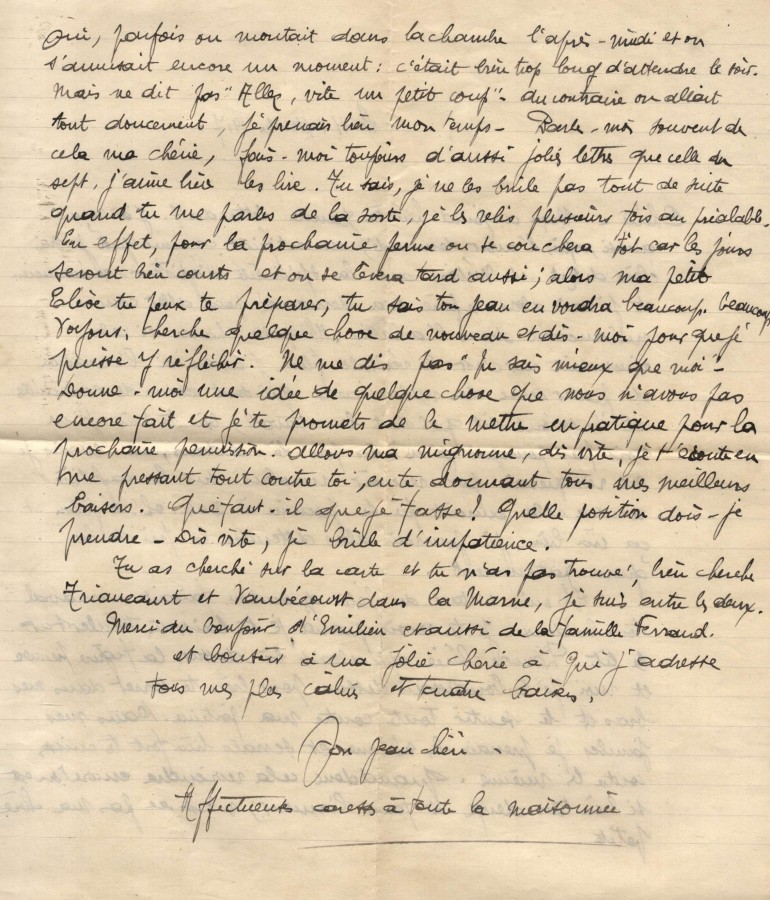 Oui, parfois on montait dans la chambre l'après-midi et on
s'amusait encore un moment : c'était bien trop long d'attendre le soir.
Mais ne dit pas "Allez, vite un petit coup" - au contraire on allait
tout doucement, je prenais bien mon temps - Parle-moi souvent de
cela ma chérie, fais-moi toujours d'aussi jolies lettres que celle du
sept, j'aime bien les lire. Tu sais, je ne les brûle pas tout de suite
quand tu me parles de la sorte, je les relis plusieurs fois au préalable.
En effet, pour la prochaine ferme on se couchera tôt car les jours
seront bien courts et on se lèvera tard aussi ; alors ma petite
tu peux te préparer, tu sais ton Jean en voudra beaucoup. beaucoup
Voyons, cherche quelque chose de nouveau et dis-moi pour que je
puisse y réfléchir. Ne me dis pas "Tu sais mieux que moi -
Donne-moi une idée de quelque chose que nous n'avons pas
encore fait et je te promets de le mettre en pratique pour la
prochaine permission. allons ma mignonne, dis vite, je t'écoute en
me pressant tout contre toi, en te donnant tous mes meilleurs
baisers. Que faut-il que je fasse ! Quelle position dois-je
prendre - Dis vite, je brûle d'impatience.
Tu as cherché sur la carte et tu n'as pas trouvé, bien cherche
Triaucourt et Vaubécourt dans la Marne, je suis entre les deux.
Merci du bonjour d'Emilien et aussi de la famille Ferraud.
et bonsoir à ma jolie chérie à qui j'adresse
tous mes plus câlins et tendre baisers.
Ton Jean chéri.
Affectueuses caresses à toute la maisonnée